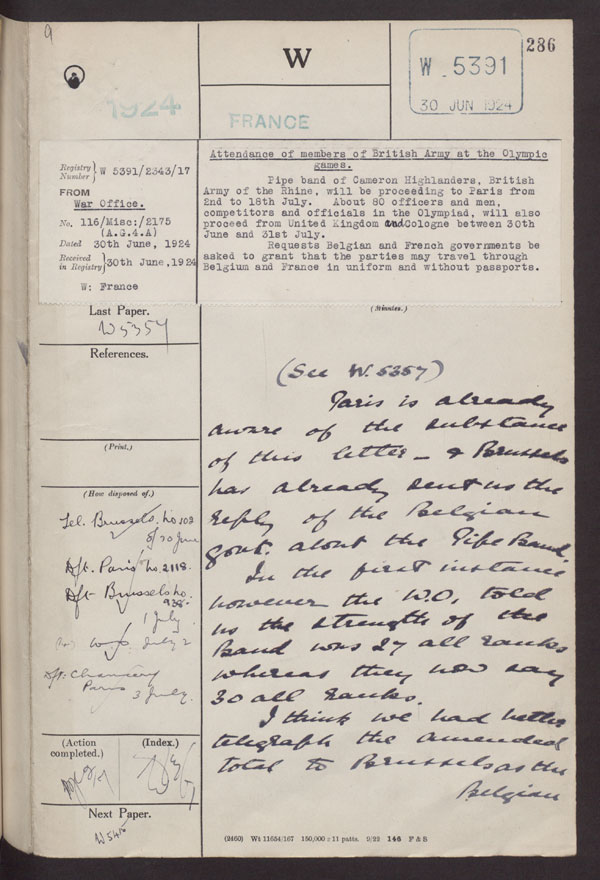 9
W
W 5391
30 JUN 1924
286
1924
FRANCE
Registry Number } W 5391/2343/17
FROM
War Office.
No. 116/Misc:/2175
(A.G.4.A)
Dated 30th June, 1924
Received in Registry } 30th June, 1924
W: France
Attendance of members of British Army at the Olympic
games.
Pipe band of Cameron Highlanders, British
Army of the Rhine, will be proceeding to Paris from
2nd to 18th July. About 80 officers and men,
competitors and officials in the Olympiad, will also
proceed from United Kingdom and Cologne between 30th
June and 31st July.
Requests Belgian and French governments be
asked to grant that the parties may travel through
Belgium and France in uniform and without passports.
Last Paper.
W5357
References.
(Print.)
(How disposed of.)
Tel. Brussels. No 102
5/30 June
Dft. Paris No. 2118.
Dft Brussels No.
938.
1 July
W.O. July 2
Dft. Chancery
Paris 3 July.
(Action completed.)
(Index.)
Next Paper.
W5415
(Minutes.)
(See W.5357)
Paris is already
aware of the substance
of this letter - & Brussels
has already sent us the
reply of the Belgian
govt. about the Pipe Band.
In the first instance
however the W.O. told
us the strength of the
Band was 27 all ranks
whereas they now say
30 all ranks.
I think we had better
telegraph the amended
total to Brussels as the
Belgian
(2460) Wt 11654/167 150,000 : 11 patts. 9/23 146 F & S